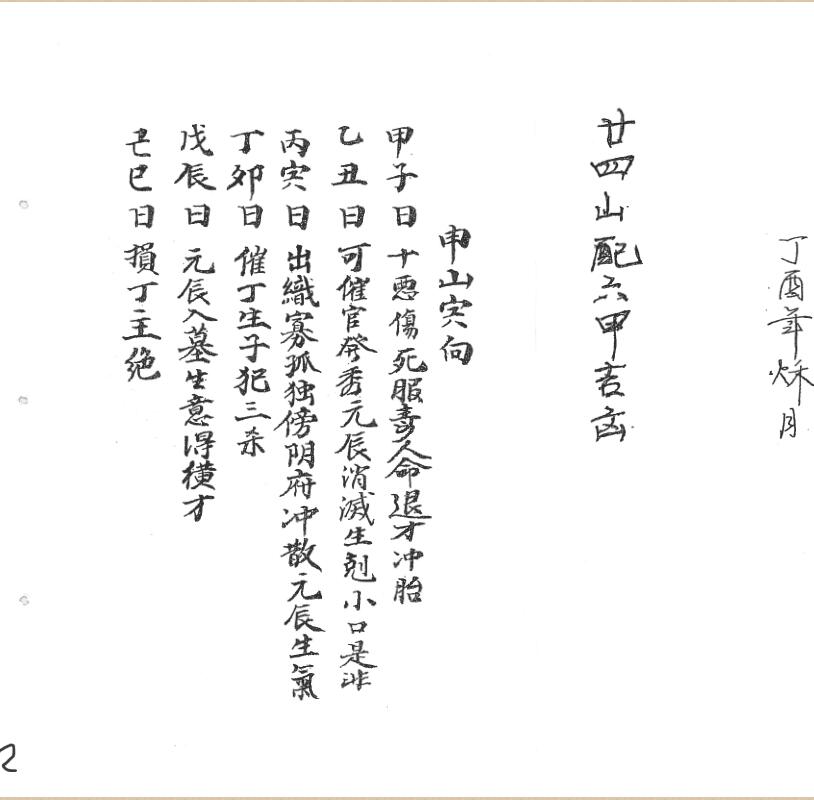 丁酉年秌月
廿四山配六甲吉凶
申山寅向
甲子日十惡傷死服毒人命退才冲胎
乙丑日可催官發秀元辰消滅生剋小口是非
丙寅日出鰥寡孤独傍阴府冲散元辰生氣
丁卯日催丁生子犯三杀
戊辰日元辰入墓生意得横才
己巳日損丁主絶
2